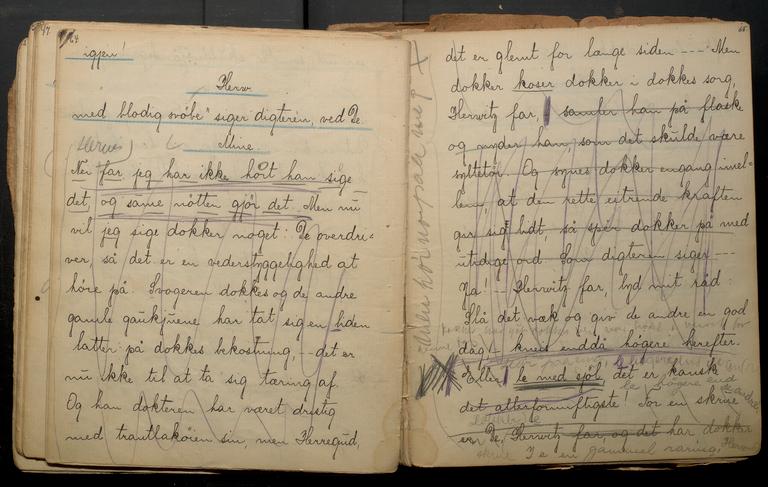 47
64
igjen!
Herw
med blodig svøbe" siger digteren, ved De
Mine.
Nei far jeg har ikke hört han sige
det, og same nötten gjör det. Men nu
vil jeg sige dokker noget: De overdri-
ver, så det er en vederstyggelighed at
höre på. Svogeren dokkes og de andre
gamle gaukjuene har tat sig en liden
latter på dokkes bekostning, -- det er
nu ikke til at ta sig tæring af.
Og han dokteren har været dristig
med trantlakoien sin, men Herregud,
65
det er glemt for længe siden --- Men
dokker koser dokker i dokkes sorg,
Herwitz far, samler han på flaske
og nyder han, som det skulde være
syltetöi. Og synes dokker engang imel-
lem, at den rette eitrende kraften
gir sig lidt, så spér dokker på med
utidige ord. Som digteren siger ---
Ja! -- Herwitz far, lyd mit råd:
Slå det væk og giv de andre en god
dag, -- kneis endda högere herefter.
Eller le med sjöl, det er kanske
det allerfornuftigste! For en skrue
er De, Herwitz far, og det har dokker
skrue De er en gammel